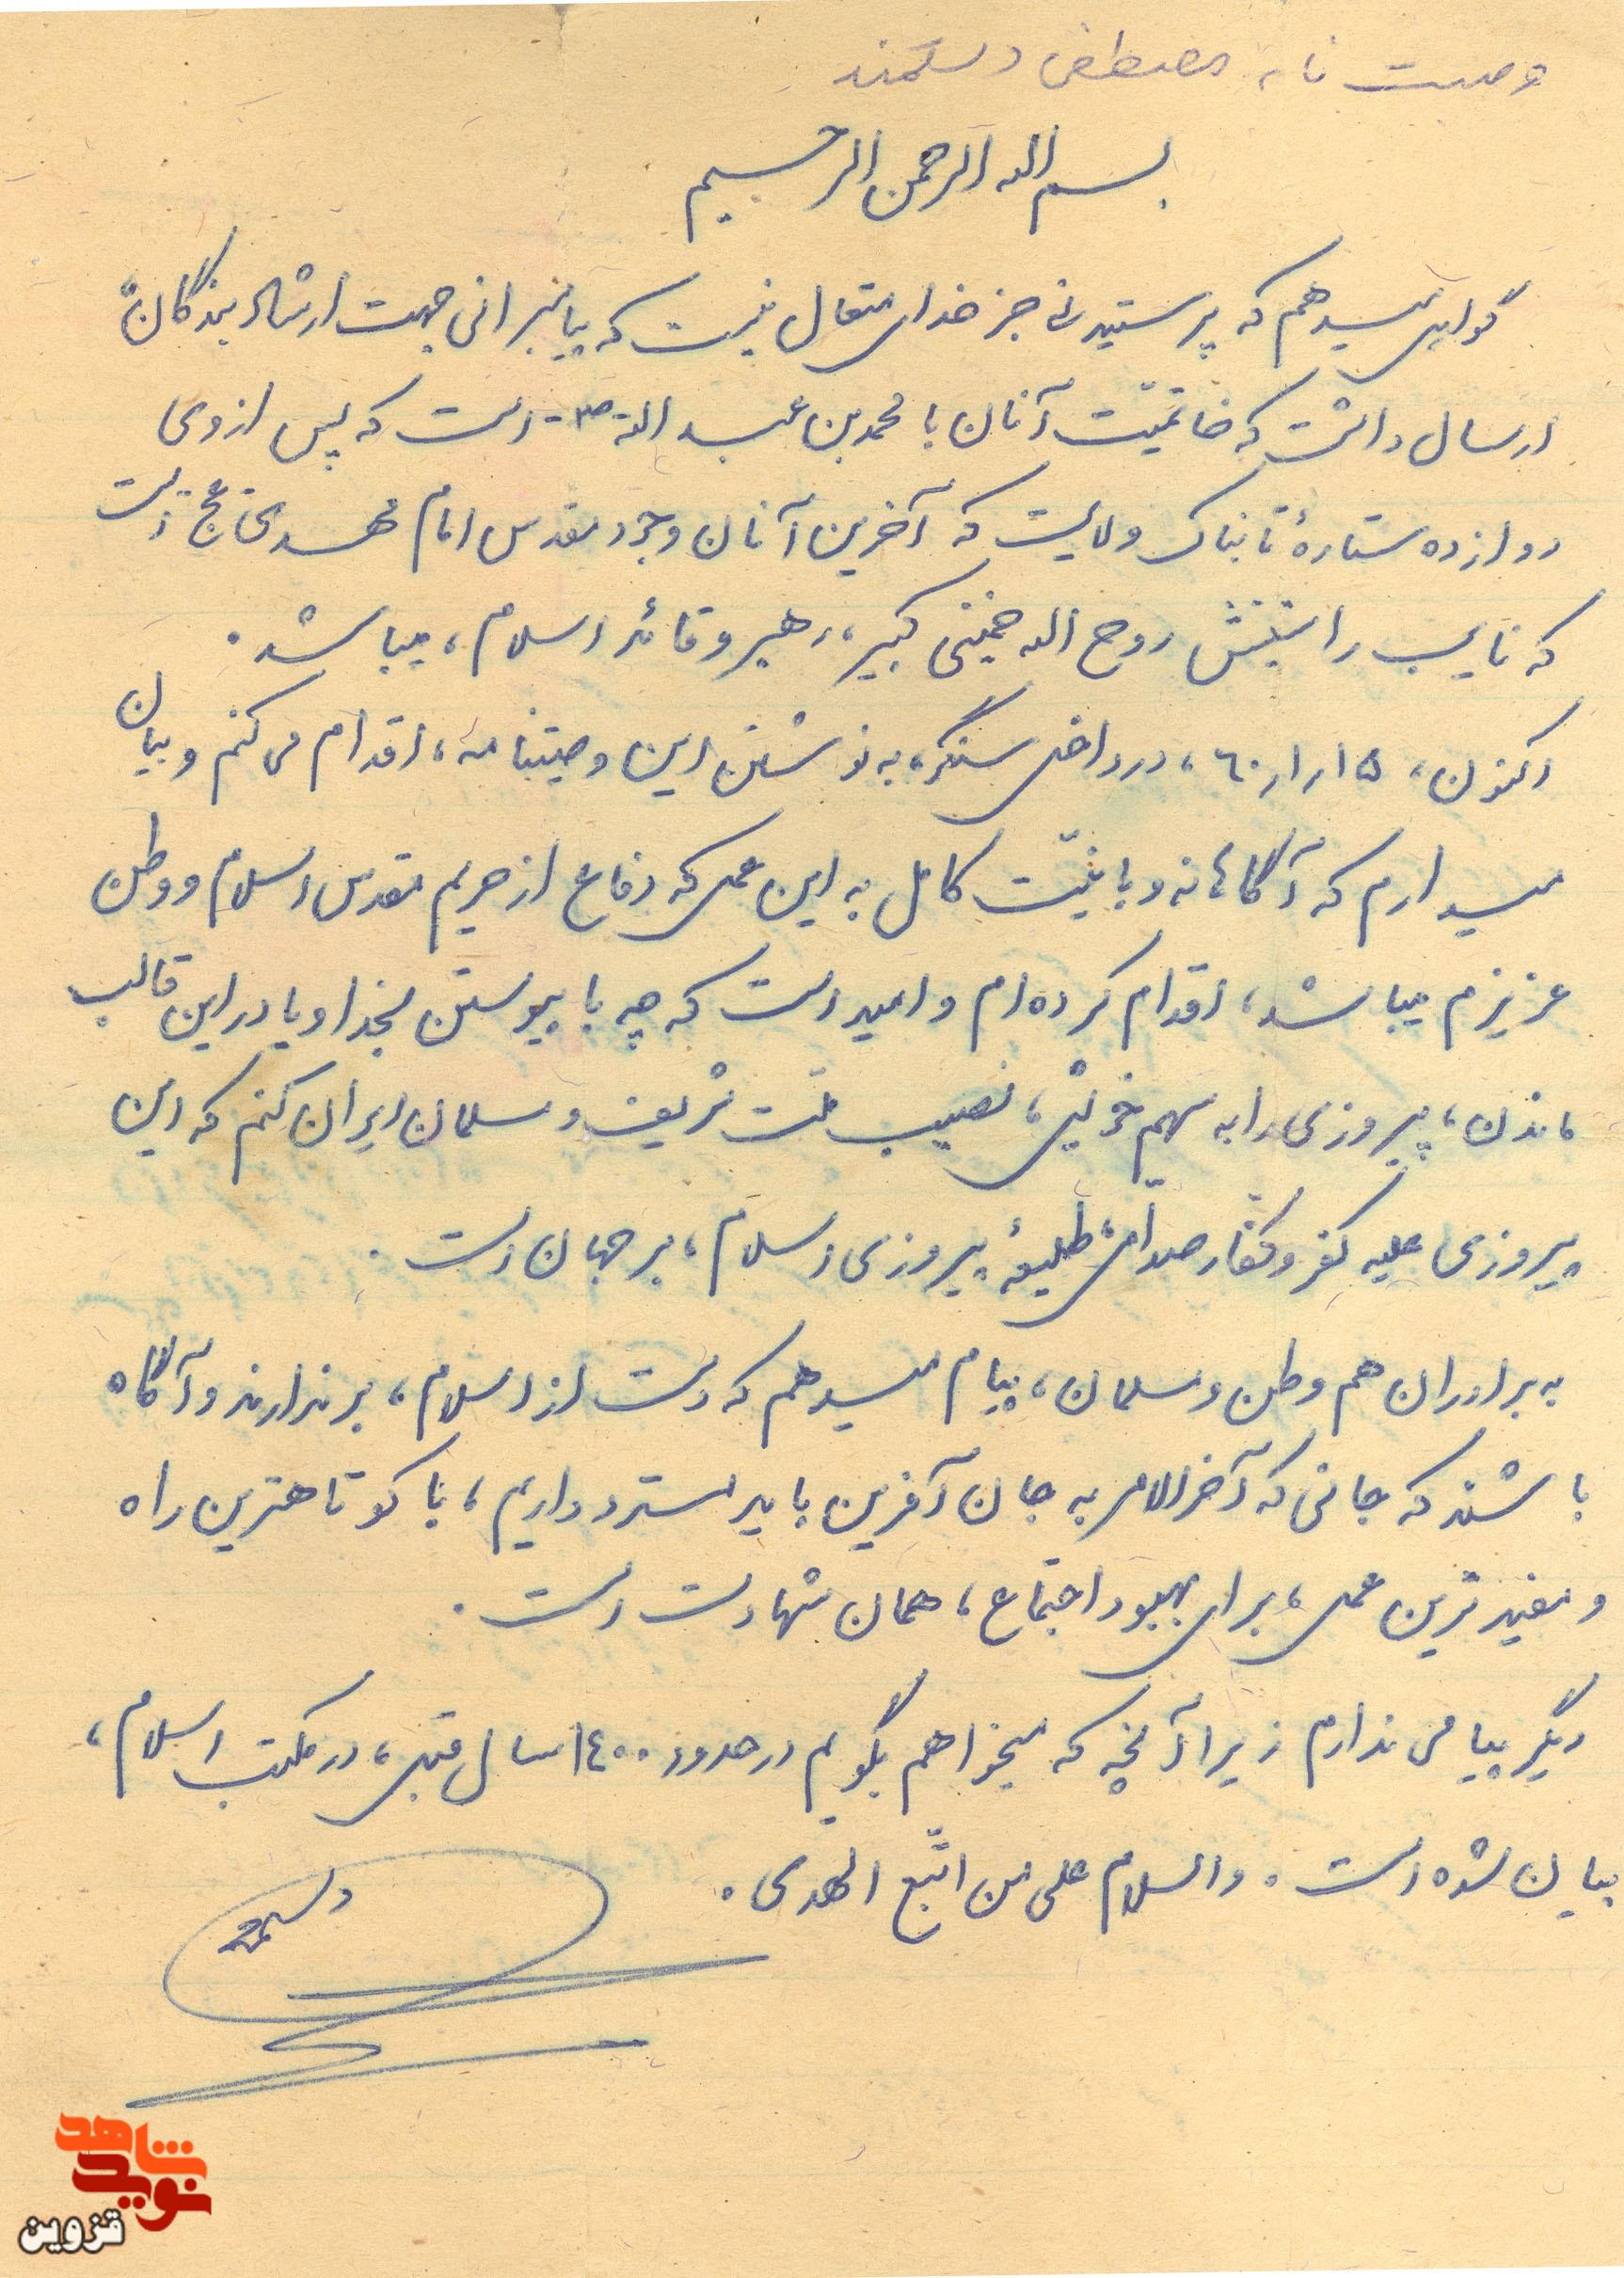 وصیت نامه مصطفی دستمند
بسم الله الرحمن الرحیم
گواهی میدهم که پرستیدنی جز خدای متعال نیست که پیامبرانی جهت ارشاد بندگان
ارسال داشت که خاتمیّت آنان با محمد بن عبدالله ص است که پس از وی
دوازده ستارهٔ تابناک ولایت که آخرین آنان وجود مقدس امام مهدی عج است
که نایب راستینش روح الله خمینی کبیر، رهبر و قائد اسلام، میباشد.
اکنون، ۱۵ ر ۱ ر ۶۰، در داخل سنگر، به نوشتن این وصیتنامه، اقدام می کنم و بیان
میدارم که آگاهانه و با نیّت کامل به این عمل که دفاع از حریم مقدس اسلام و وطن
عزیزم میباشد، اقدام کرده ام و امید است که چه با پیوستن بخدا و یا در این قالب
ماندن، پیروزی را به سهم خویش، نصیب ملت شریف و مسلمان ایران کنم که این
پیروزی علیه کفر و کفار صدّامی، طلیعهٔ پیروزی اسلام، بر جهان است.
به برادران هم وطن و مسلمان، پیام میدهم که دست از اسلام، برندارند و آگاه
باشند که جانی که آخرالامر به جان آفرین باید مسترد داریم، با کوتاهترین راه
و مفیدترین عمل، برای بهبود اجتماع، همان شهادت است.
دیگر پیامی ندارم زیرا آنچه که میخواهم بگویم در حدود ۱۴۰۰ سال قبل، در مکتب اسلام،
بیان شده است. والسلام علی من اتّبع الهدی.
شاهد
نوید
قزوین